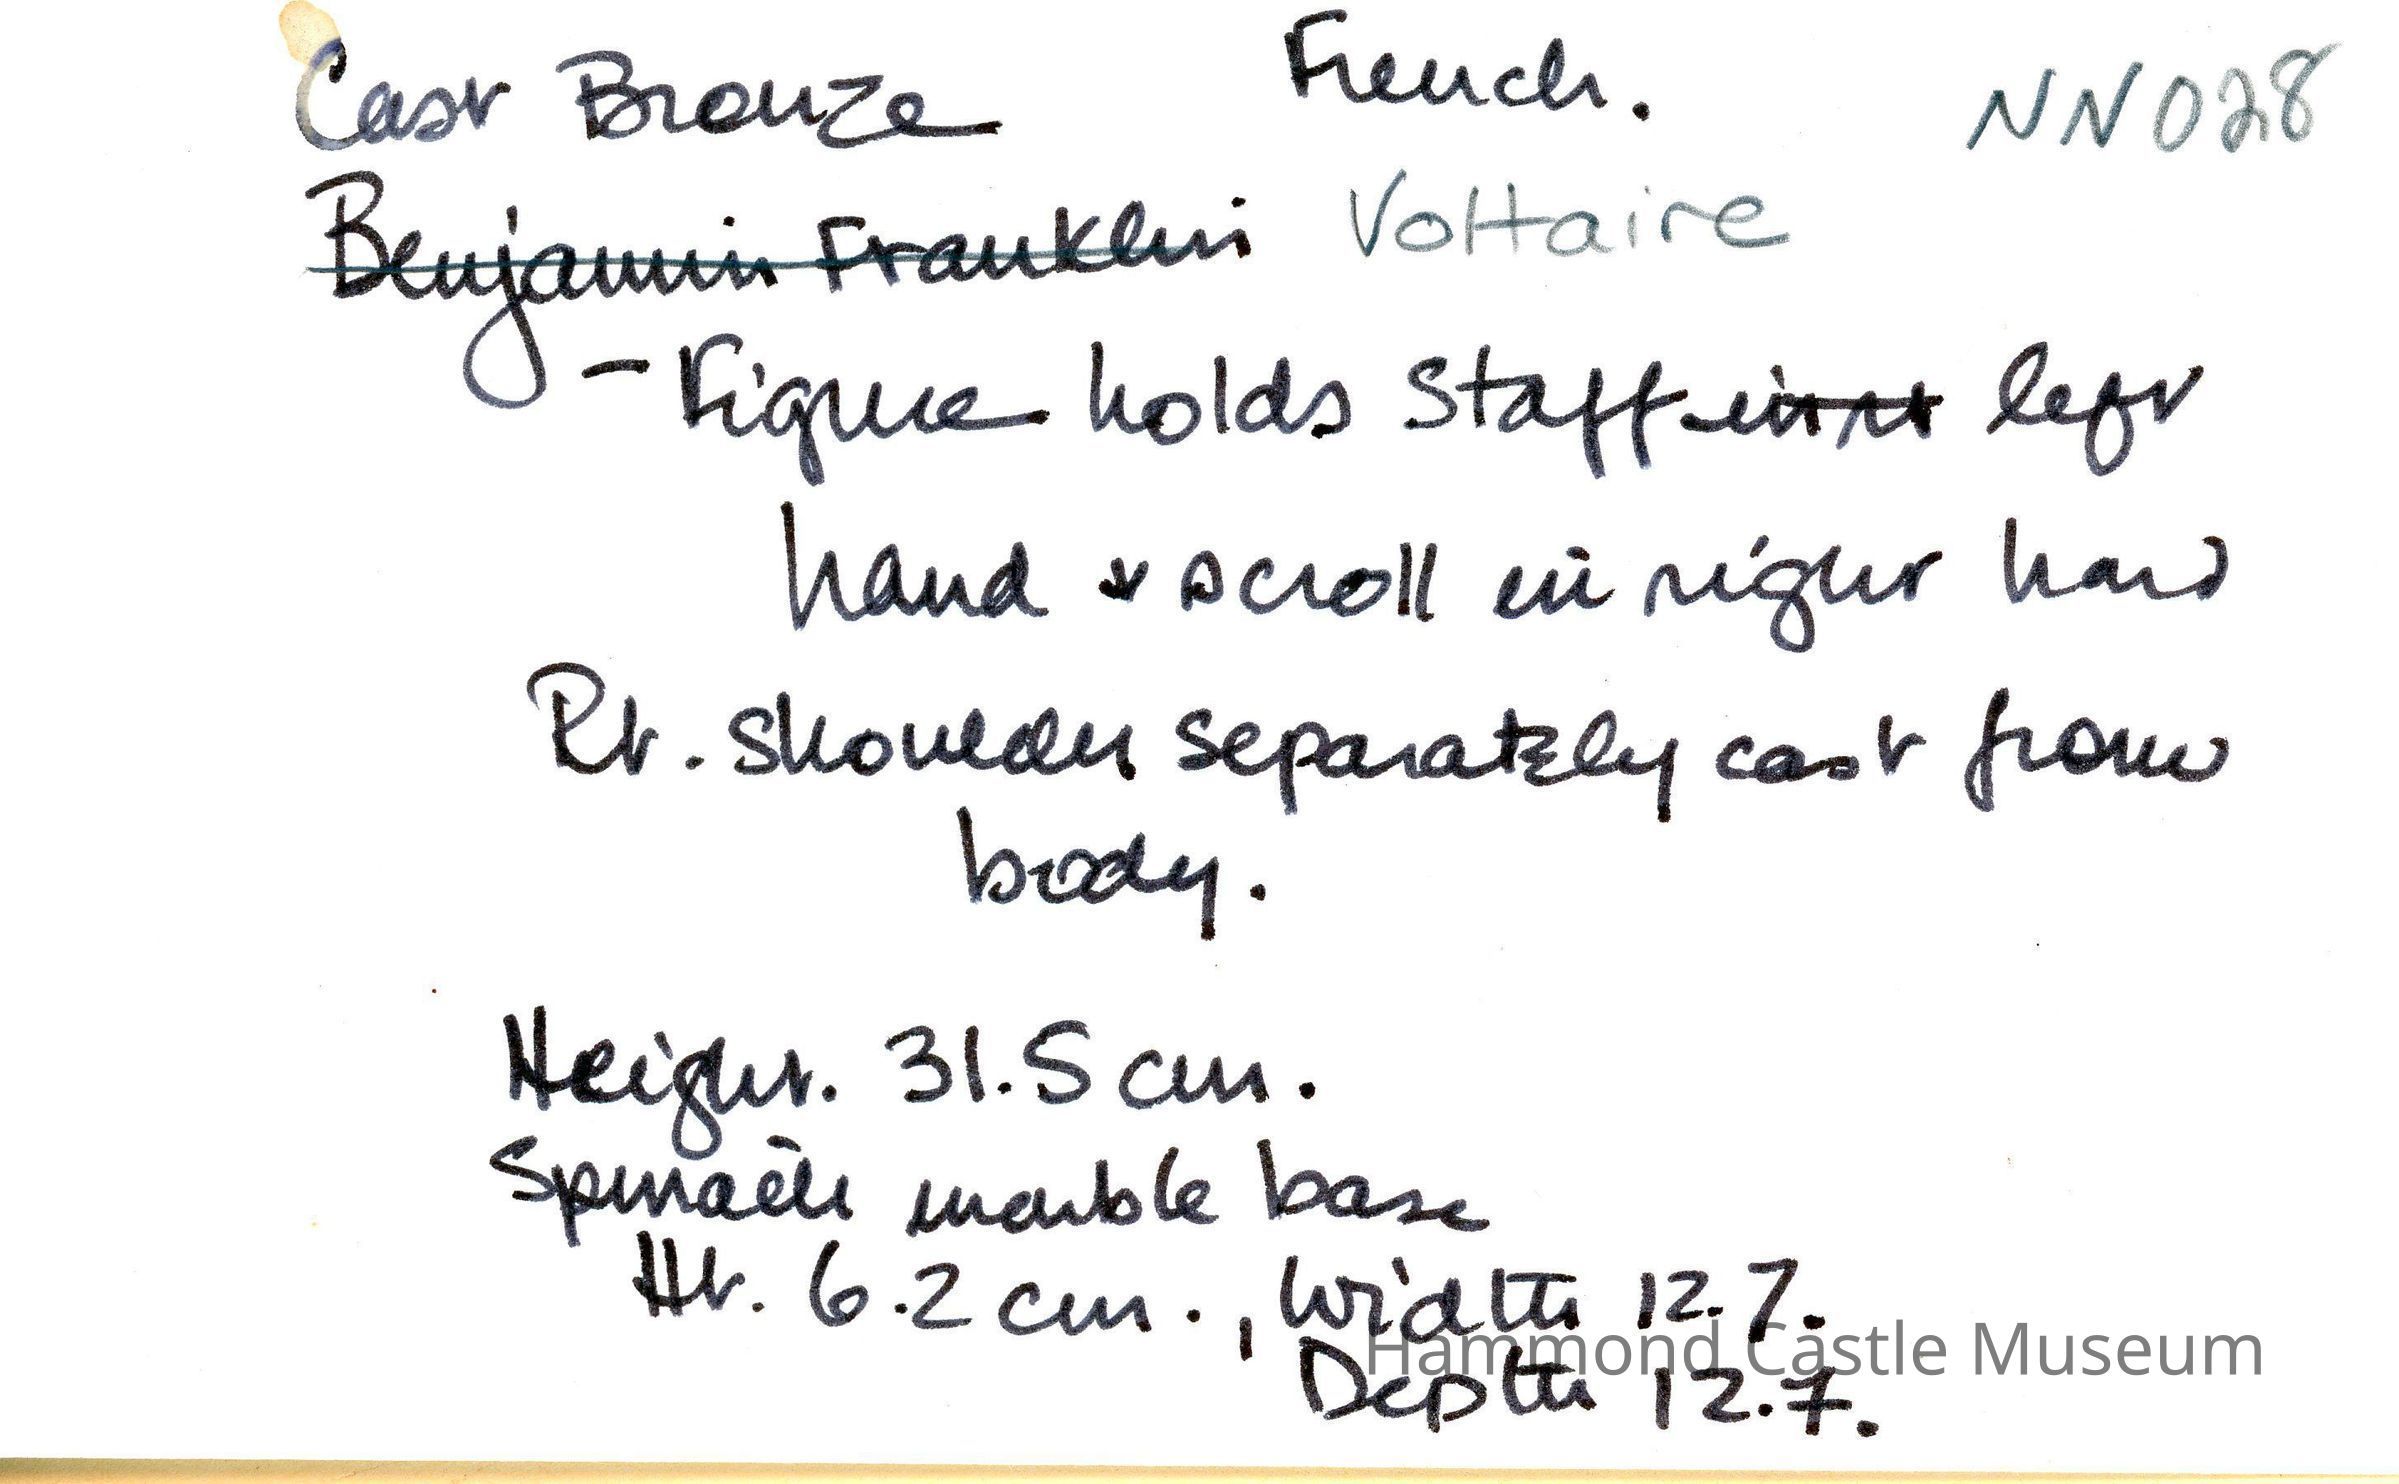 Cast Bronze French. NN028
Benjamin Franklin Voltaire
- Figure holds staff in rt left
hand & scroll in right hand
Rt. shoulder separately cast from
body.
Height. 31.5 cm.
Spinach marble base
Ht. 6.2 cm., Width 12.7.
Hammond Castle Museum
Depth 12.7.